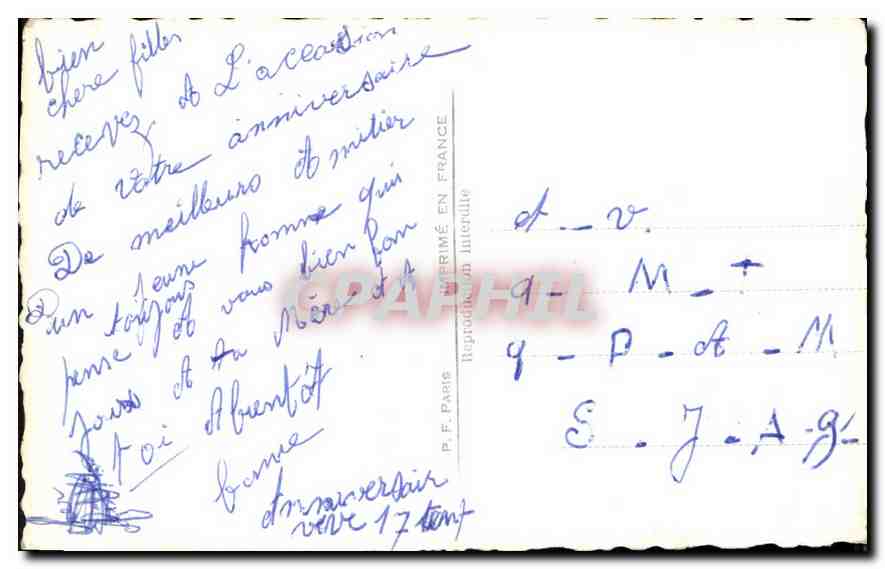 bien
chere filles
recevez A L'accasion
de votre anniversaire
De meilleurs Amitier
d'un jeune homme qui
toujous
pense A vous bien bon
jour A ta Mère et A
toi Abientôt
bonne
Anniversair
vive 17 
P. F. PARIS IMPRIMÉ EN FRANCE
Reproduction Interdite
CPAPHIL
A - V.
9 - M - T
9 - P - A - M
S - J - A - G -